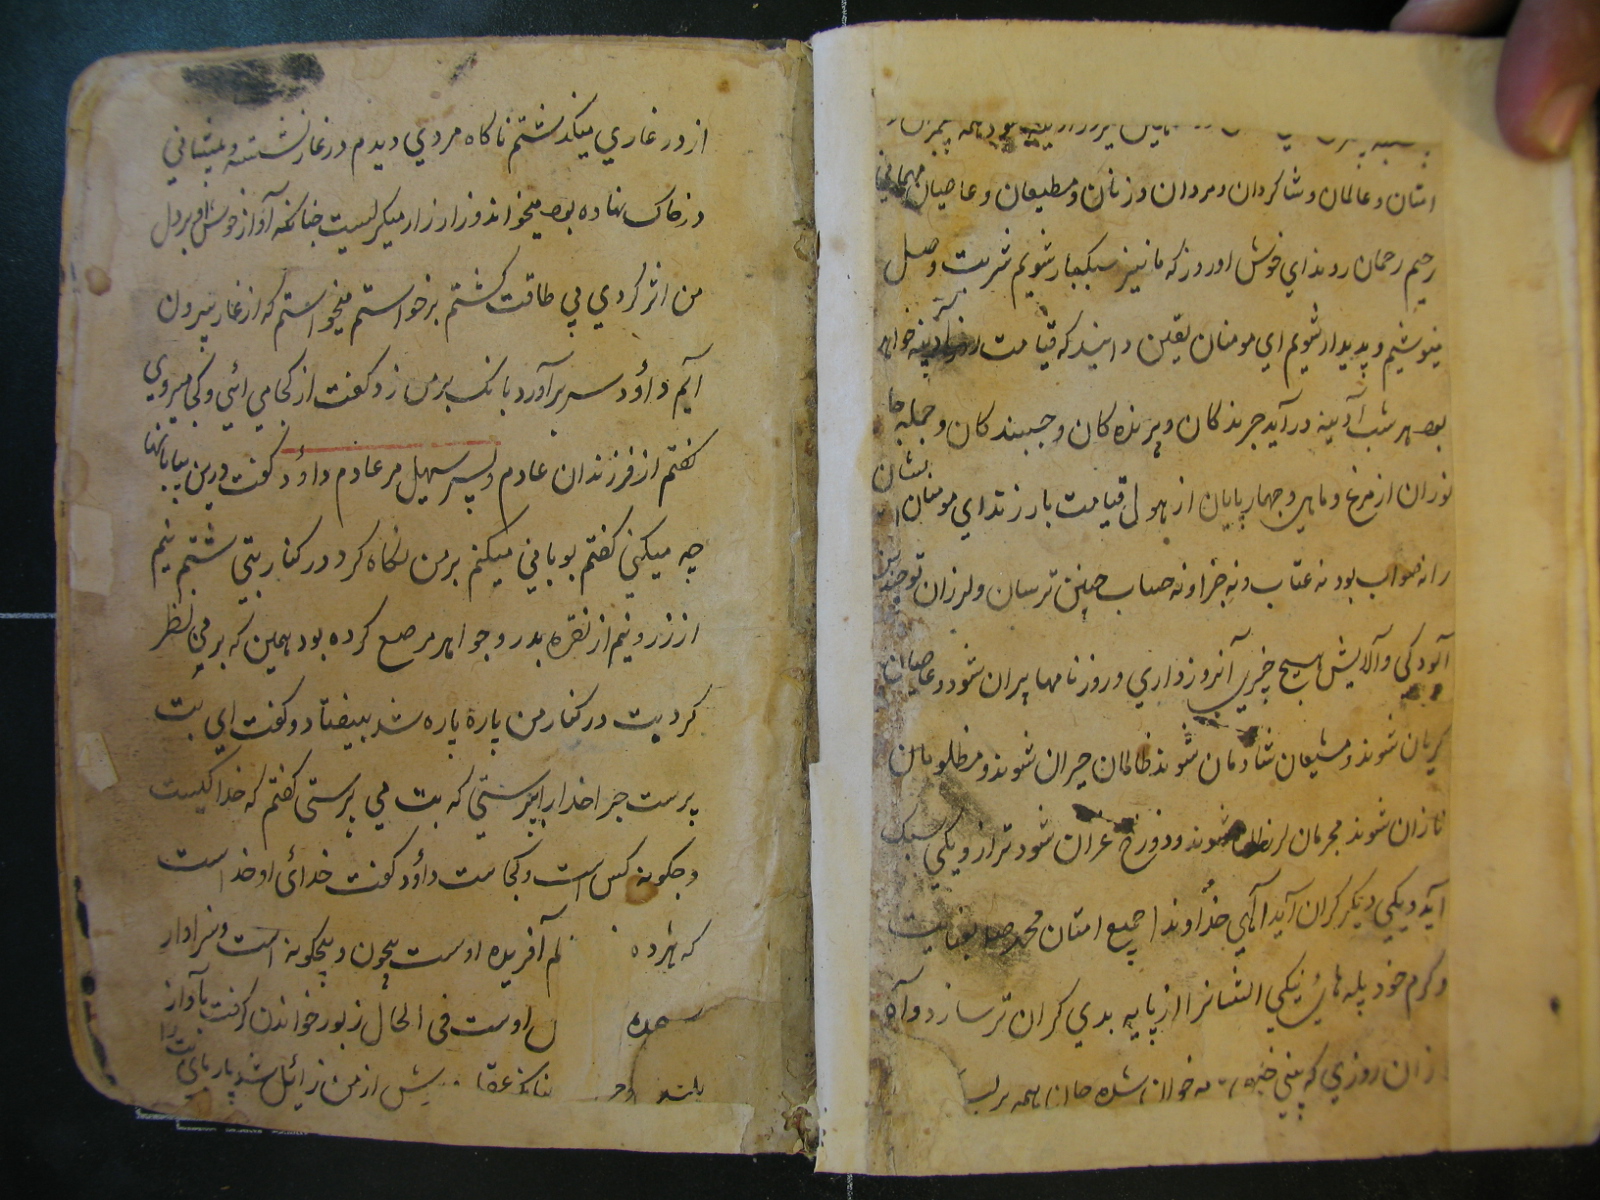 امتان و عالمان و شاکردان و مردان و زنان و مطیعان و عاصیان مهمانی
رحیم رحمان روند ای خوش اوروز که ما نیز سبکبار شویم شربت وصل
بنوشیم و پدیدار شویم ای مومنان یقین دانید که قیامت روز آدینه خواهد
بود هر شب آدینه در آید جرندکان و پرنده کان و جنبندکان و جمله جا
نوران از مرغ و ماهی و چهارپایان از هول قیامت بلرزند ای مومنان ایشان
را نه ثواب بود نه عتاب و نه جزا و نه حساب چنین ترسان و لرزان تو چندین
آلودکی و آلایش هیچ خبری آنروز داری و روز نامها پران شود و عاصیان
کریان شوند و مشیعان شادمان شوند ظالمان حیران شوند و مظلومان
نازان شوند مجرمان شوند و دوزخ غران شود ترازو یکی سبک
آید و یکی دیکر کران آید الهی خداوندا جمیع امتان محمد بعنایت
و کرم خود پله های نیکی ایشانرا از پایه بدی کران تر ساز دو آه
زان روزی که بینی همه بر لب
از در غاری میکذشتم ناکاه مردی دیدم در غار نشسته و پیشانی
در خاک نهاده بود میخواند و زار زار میکریست چنانکه آواز خوش او بر دل
من اثر کردی بی طاقت کشتم برخواستم میخواستم که از غار بیرون
آیم داؤد سر برآورد بانک بر من زد و کفت از کجا می ائی و کجا میروی
کفتم از فرزندان عادم و پسر سهیل مر عادم داؤد کفت درین بیابانها
چه میکنی کفتم بوبانی میکنم بر من نکاه کرد در کنار بتی شتم نیم
از زر و نیم از نقره بدر و جواهر مرصع کرده بود همین که بر من نظر
کرد بت در کنار من پاره پاره شد بیفتاد و کفت ای بت
پرست چرا خدا را نپرستی که بت می پرستی کفتم که خدا کیست
و چکونه کس است و کجاست داؤد کفت خدای او خداست
که هژده لم آفریده اوست بیچون و بیچکونه است و سزاوار
سجده ل اوست فی الحال زبور خواندن کرفت بآواز
بلند چنانکه عقل من زائل شد